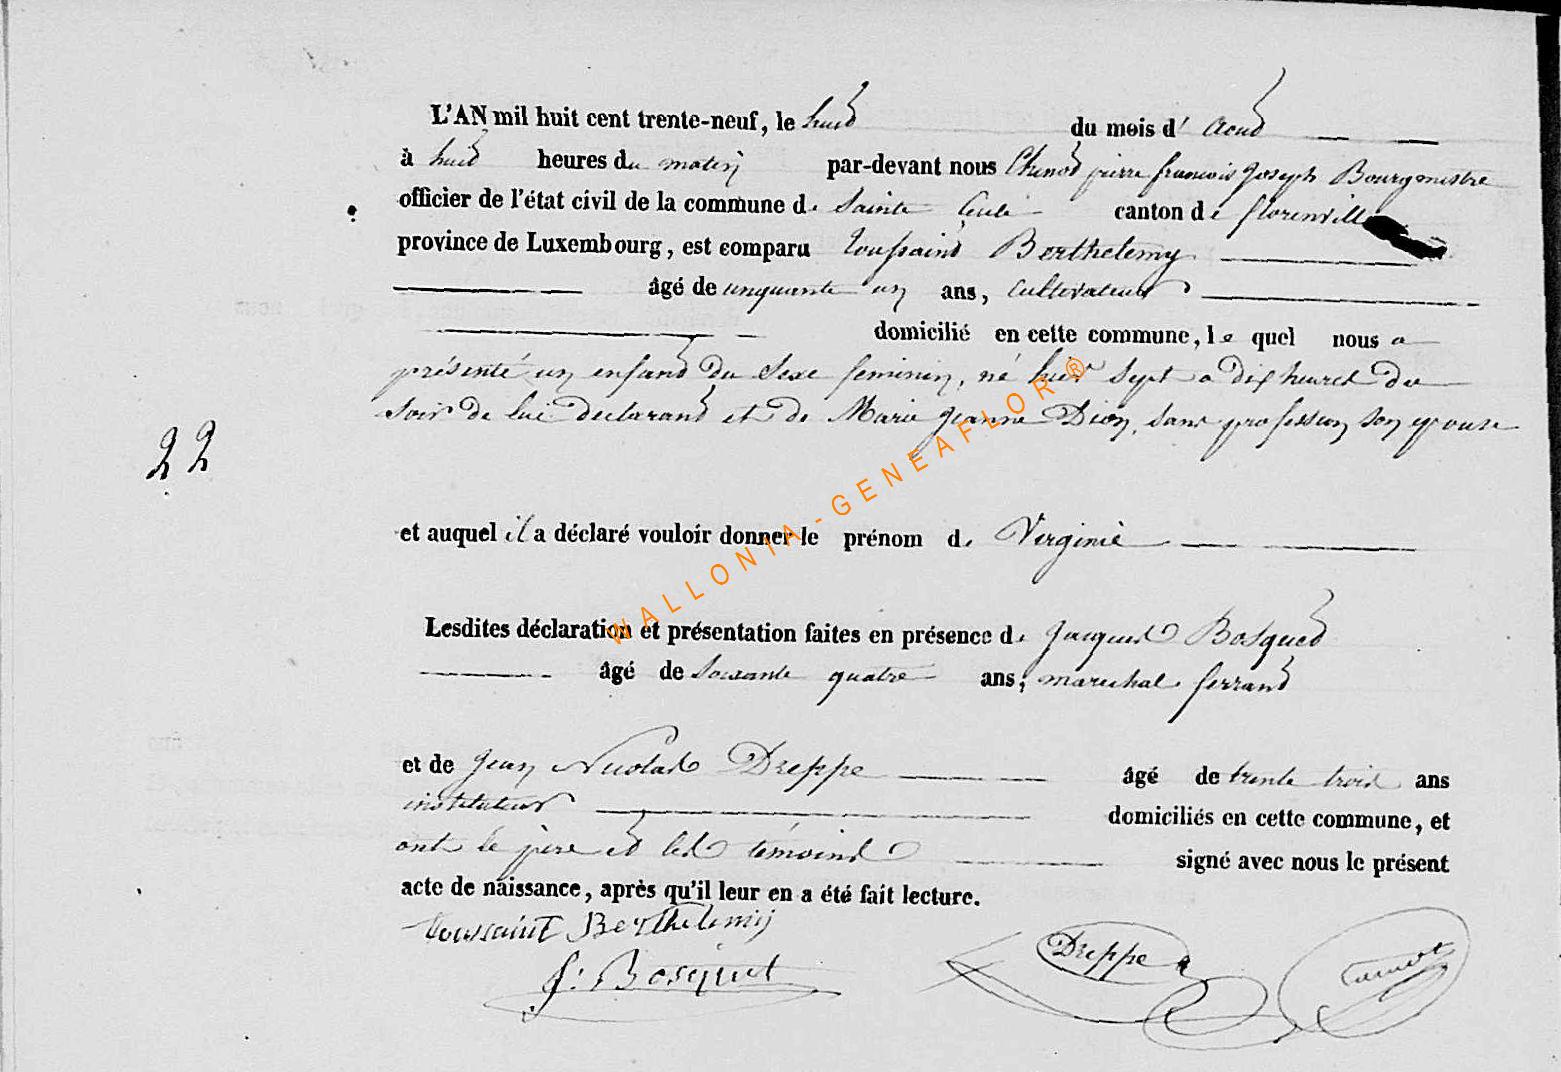 L'AN mil huit cent trente-neuf, le huit du mois d' Aout
à huit heures du matin par-devant nous pierre francois Joseph Bourgmestre
officier de l'état civil de la commune de Sainte Cecile canton de florenville
province de Luxembourg, est comparu Toussaint Berthelemy
âgé de cinquante un ans, cultivateur
domicilié en cette commune, le quel nous a
présenté un enfant du sexe feminin, né hier sept a dix heures du
soir de lui declarant et de Marie Jeanne Dion, sans profession son epouse
22
et auquel il a déclaré vouloir donner le prénom de Virginie
WALLONIA-GENEAFLOR®
Lesdites déclaration et présentation faites en présence de Jacques Bosquet
âgé de soixante quatre ans, marechal ferrant
et de Jean Nicolas Dreppe âgé de trente trois ans
instituteur domiciliés en cette commune, et
ont le père et les témoins signé avec nous le présent
acte de naissance, après qu'il leur en a été fait lecture.
Toussaint Berthelemij
J: Bosquet Dreppe